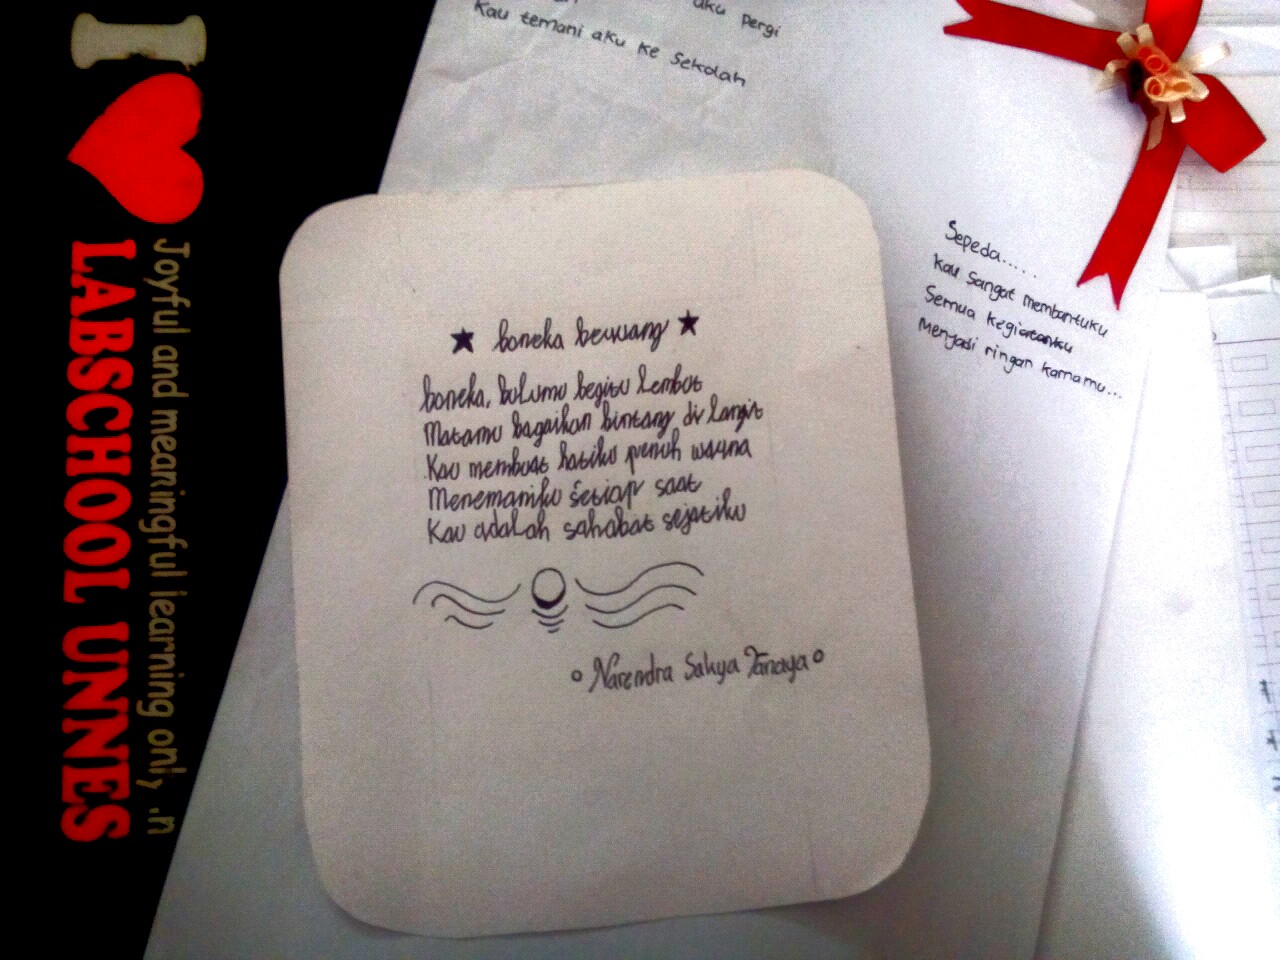 I
Joyful and meaningful learning only .n
LABSCHOOL UNNES
aku pergi
Kau temani aku ke Sekolah
Sepeda.....
Kau Sangat membantuku
Semua kegiatanku
Menjadi ringan karnamu...
★ boneka beruang ★
boneka, bulumu begitu lembut
Matamu bagaikan bintang di langit
Kau membuat hatiku penuh warna
Menemaniku setiap saat
Kau adalah sahabat sejatiku
Narendra Satya Tanaya